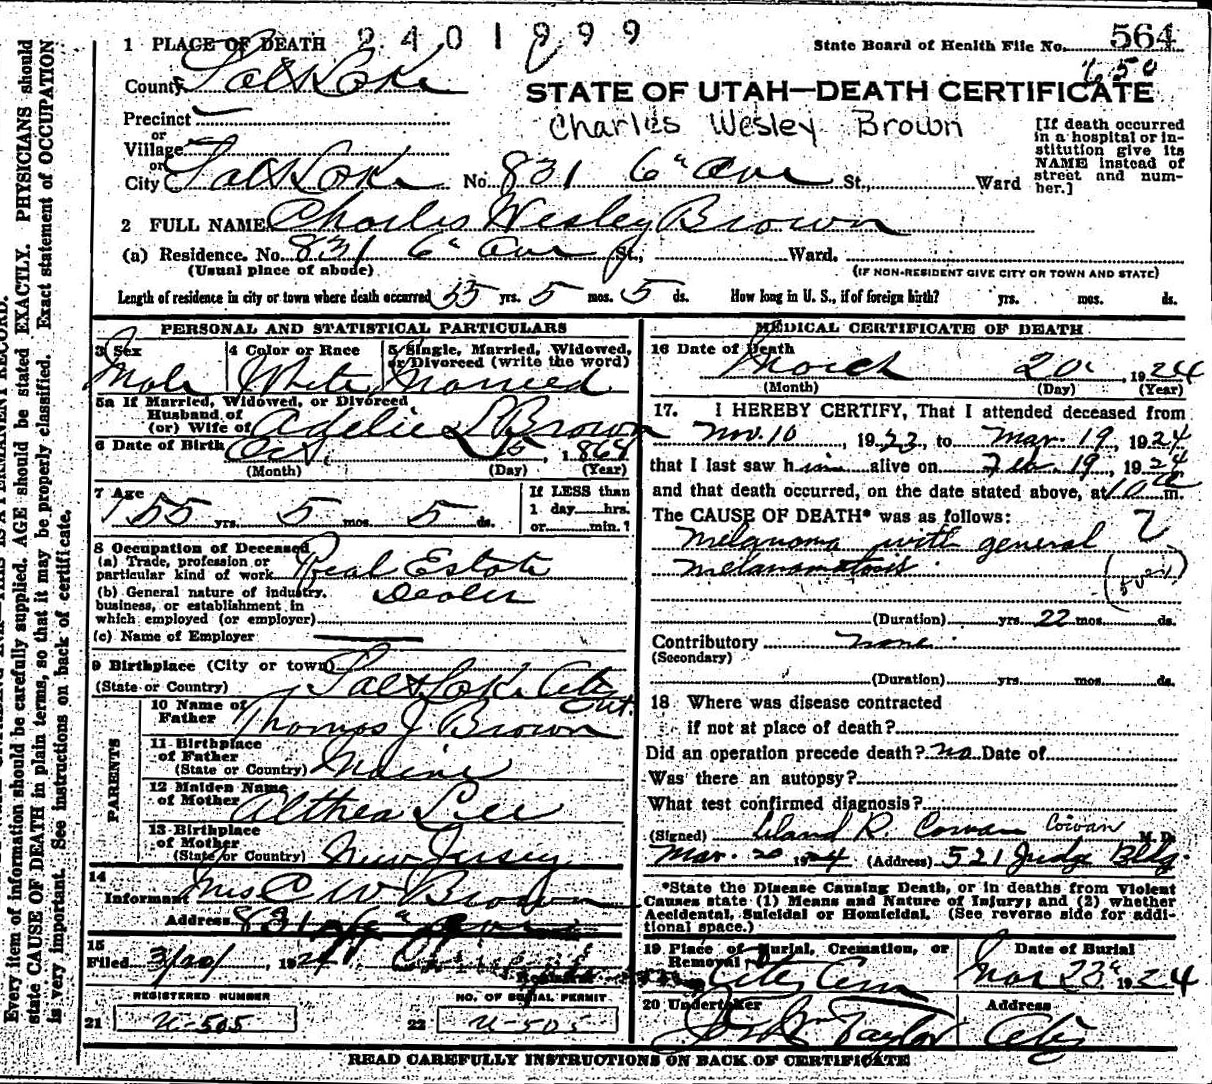 1 PLACE OF DEATH 2401999
State Board of Health File No. 564
County Salt Lake
650
STATE OF UTAH—DEATH CERTIFICATE
Precinct
Charles Wesley Brown
or
Village
or
City Salt Lake No. 831 6" Ave St., Ward
[If death occurred
in a hospital or in-
stitution give its
NAME instead of
street and num-
ber.]
2 FULL NAME Charles Wesley Brown
(a) Residence. No. 831 6" Ave St., Ward.
(Usual place of abode)
(IF NON-RESIDENT GIVE CITY OR TOWN AND STATE)
Length of residence in city or town where death occurred 55 yrs. 5 mos. 5 ds. How long in U. S., if of foreign birth? yrs. mos. ds.
PERSONAL AND STATISTICAL PARTICULARS
3 Sex
Male
4 Color or Race
White
5 Single, Married, Widowed,
or Divorced (write the word)
Married
5a If Married, Widowed, or Divorced
Husband of
(or) Wife of Adelia L Brown
6 Date of Birth Oct. 15, 1868
(Month) (Day) (Year)
7 Age
55 yrs. 5 mos. 5 ds.
If LESS than
1 day hrs.
or min.?
8 Occupation of Deceased
(a) Trade, profession or
particular kind of work Real Estate
(b) General nature of industry, Dealer
business, or establishment in
which employed (or employer)
(c) Name of Employer
9 Birthplace (City or town)
(State or Country) Salt Lake City Ut.
PARENTS
10 Name of
Father Thomas J. Brown
11 Birthplace
of Father
(State or Country) Maine
12 Maiden Name
of Mother Althea Lee
13 Birthplace
of Mother
(State or Country) New Jersey
14
Informant Mrs C W Brown
Address 831 6" Ave
15
Filed 3/20/, 1924
Registrar
REGISTERED NUMBER
21 U-505
NO. OF BURIAL PERMIT
22 U-505
MEDICAL CERTIFICATE OF DEATH
16 Date of Death
March 20, 1924
(Month) (Day) (Year)
17. I HEREBY CERTIFY, That I attended deceased from
Nov. 10, 1923, to Mar. 19, 1924
that I last saw him alive on Feb. 19, 1924
and that death occurred, on the date stated above, at 10 a m.
The CAUSE OF DEATH* was as follows:
Melanoma with general
melanomatosis.
(Duration) yrs. 22 mos. ds.
Contributory none.
(Secondary)
(Duration) yrs. mos. ds.
18 Where was disease contracted
if not at place of death?
Did an operation precede death? no Date of
Was there an autopsy?
What test confirmed diagnosis?
(Signed) Leland R. Cowan Cowan M. D.
Mar. 20 1924 (Address) 521 Judge Bldg.
*State the Disease Causing Death, or in deaths from Violent
Causes state (1) Means and Nature of Injury; and (2) whether
Accidental, Suicidal or Homicidal. (See reverse side for addi-
tional space.)
19 Place of Burial, Cremation, or
Removal City Cem
Date of Burial
Mar 23" 1924
20 Undertaker
Taylor
Address
City
READ CAREFULLY INSTRUCTIONS ON BACK OF CERTIFICATE
Every item of information should be carefully supplied. AGE should be stated EXACTLY. PHYSICIANS should
state CAUSE OF DEATH in plain terms, so that it may be properly classified. Exact statement of OCCUPATION
is very important. See instructions on back of certificate.